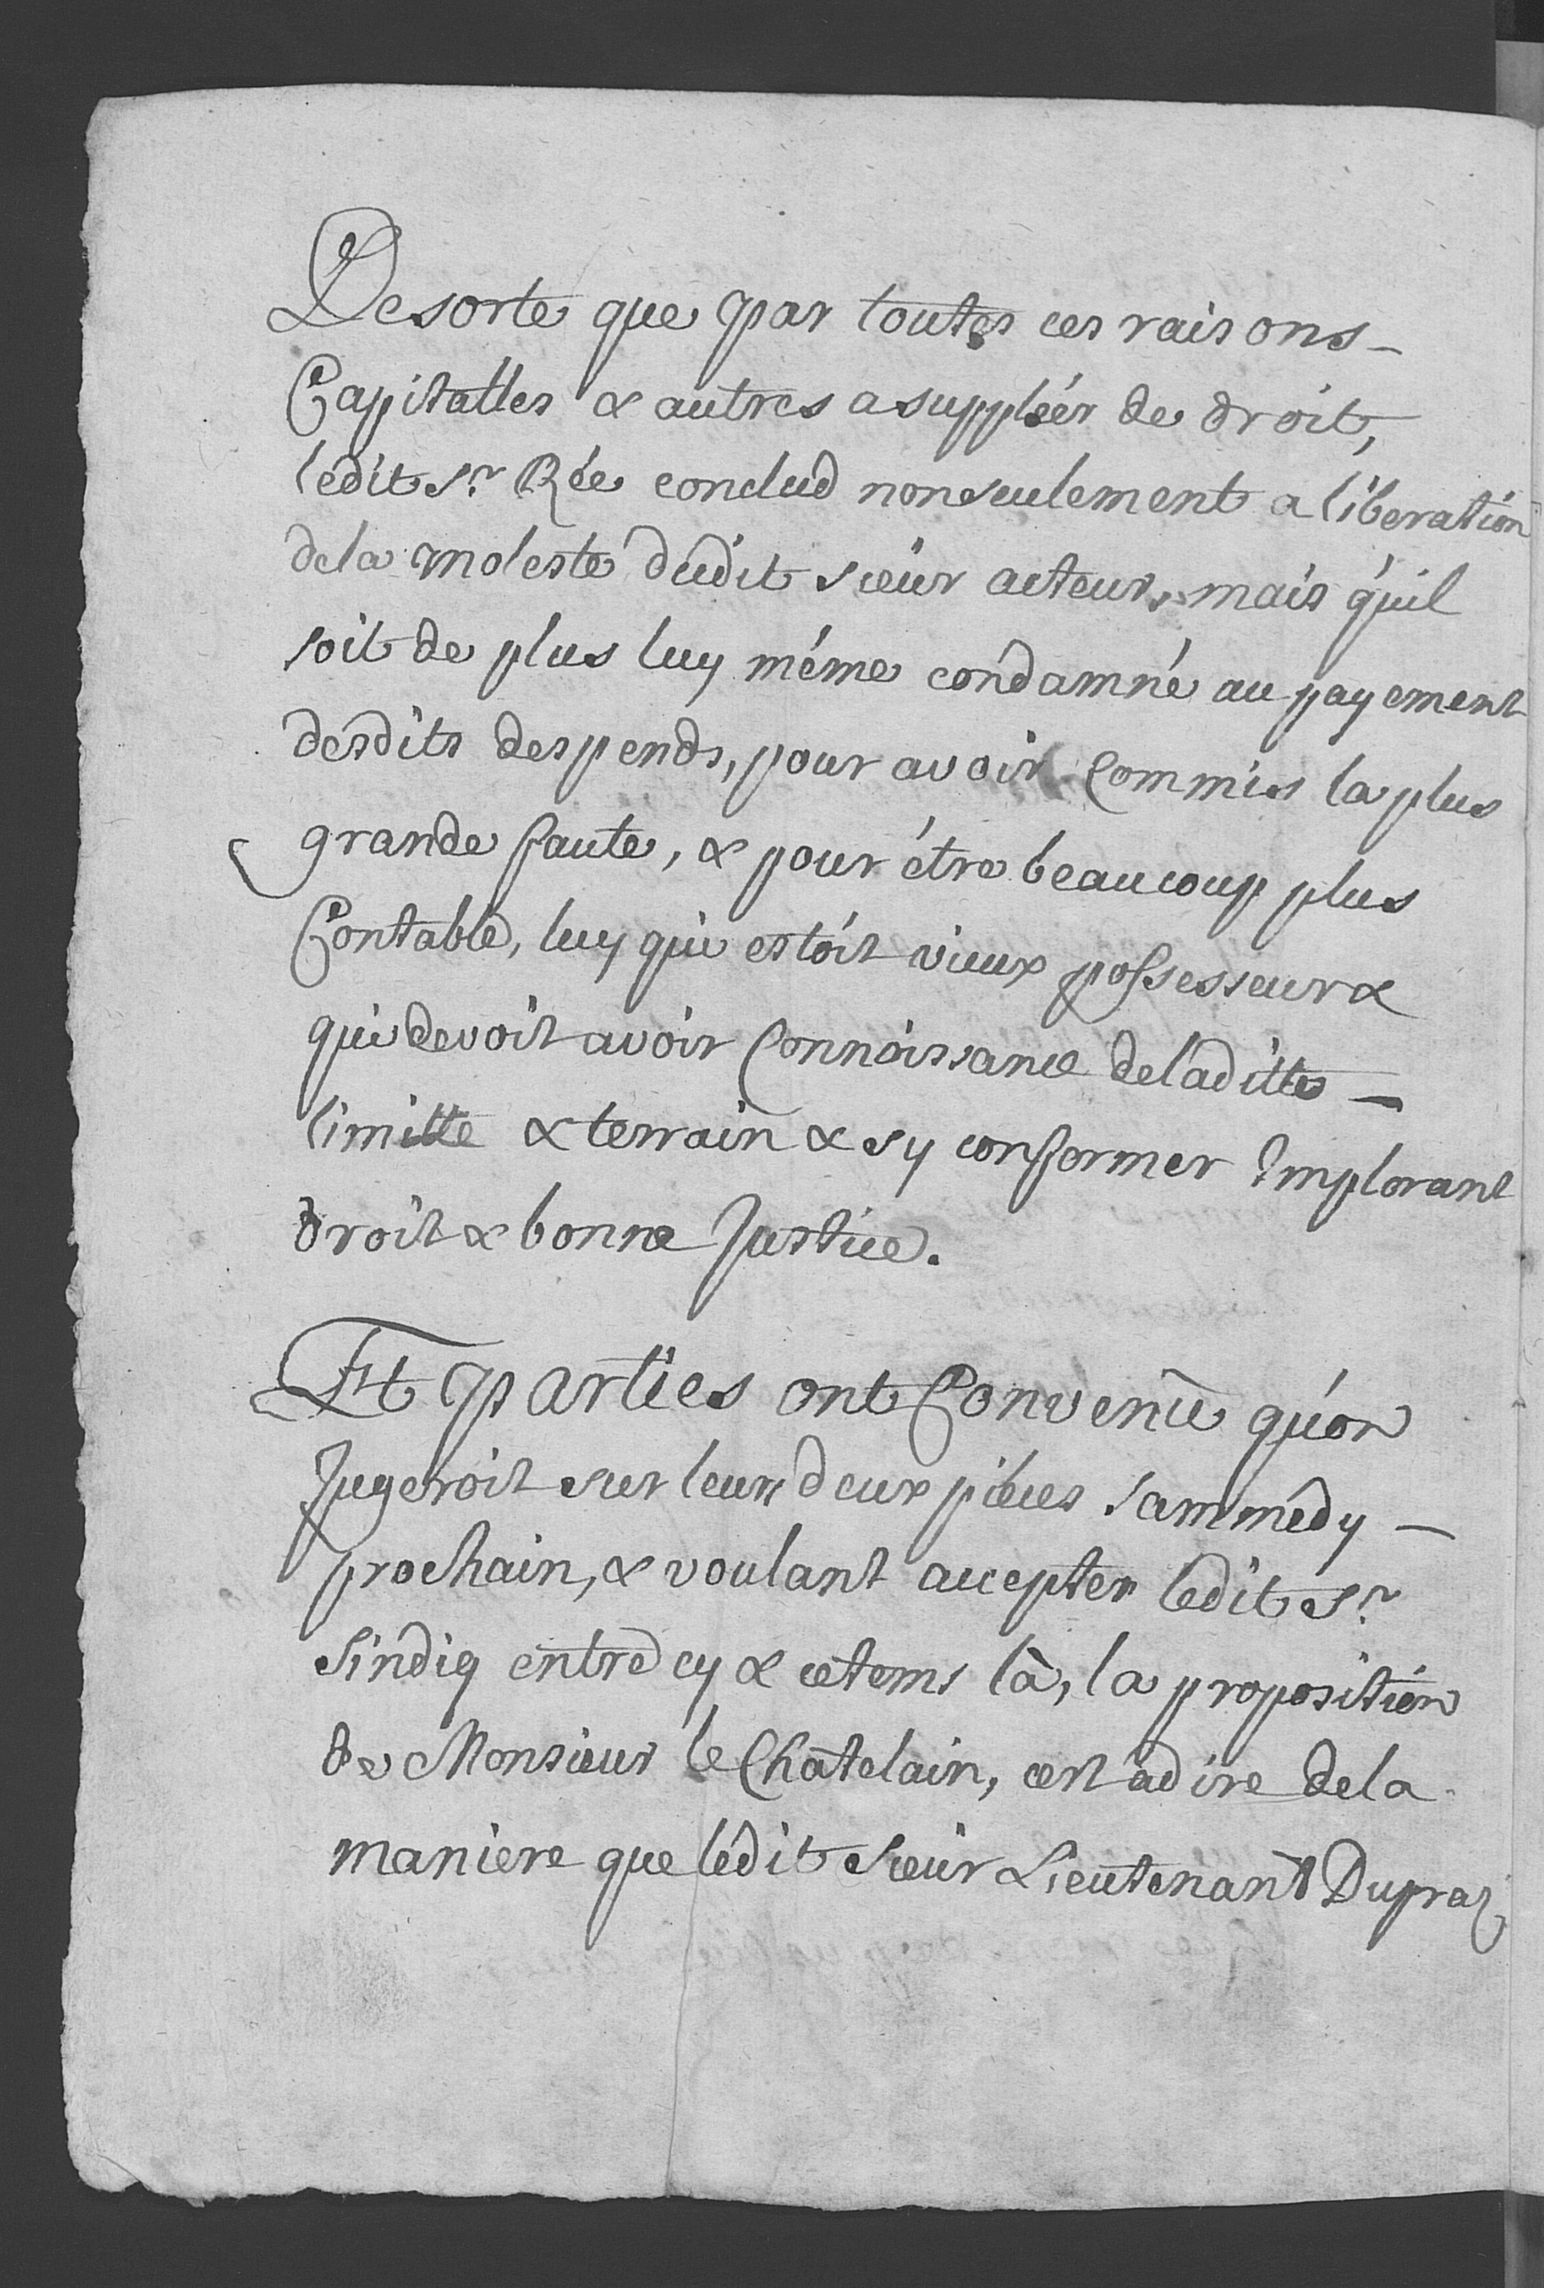 Desorte que par toutes ces raisons_
Capitalles & autres a suppléér de droit,
ledit Sr. Rée conclud nonseulement a liberation
dela moleste dudit sieur acteur, mais qu'il
soit de plus luy méme condamné au payement
desdits despends, pour avoir Commis la plus
grande faute, & pour étre beaucoup plus
Contable, luy qui estoit vieux possesseur &
qui devoit avoir Connoissance deladitte_
limitte & terrain & sy conformer Implorant
droit & bonne Justice.
Et parties ont Convenu qu'on
Jugeroit sur leurs deux piéces Sammedy_
prochain, & voulant accepter ledit Sr.
Sindiq entre cy & cetems là, la proposition
de Monsieur le Chatelain, cest adire dela
maniere que ledit Sieur Lieutenant Dupraz